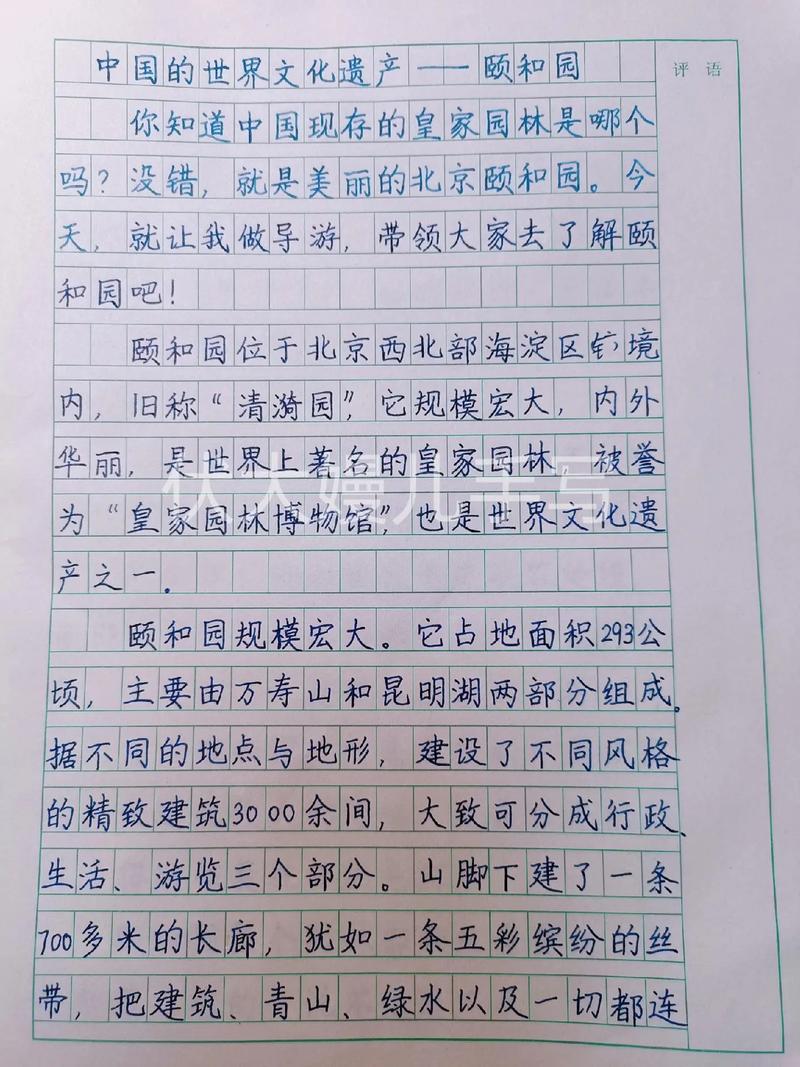 中国的世界文化遗产——颐和园
评语
你知道中国现存的皇家园林是哪个
吗？没错，就是美丽的北京颐和园。今
天，就让我做导游，带领大家去了解颐
和园吧！
颐和园位于北京西北部海淀区境
内，旧称“清漪园”，它规模宏大，内外
华丽，是世界上著名的皇家园林 被誉
为“皇家园林博物馆”，也是世界文化遗
产之一．
颐和园规模宏大。它占地面积293公
顷，主要由万寿山和昆明湖两部分组成。
据不同的地点与地形，建设了不同风格
的精致建筑3000余间，大致可分成行政、
生活、游览三个部分。山脚下建了一条
700多米的长廊，犹如一条五彩缤纷的丝
带，把建筑、青山、绿水以及一切都连